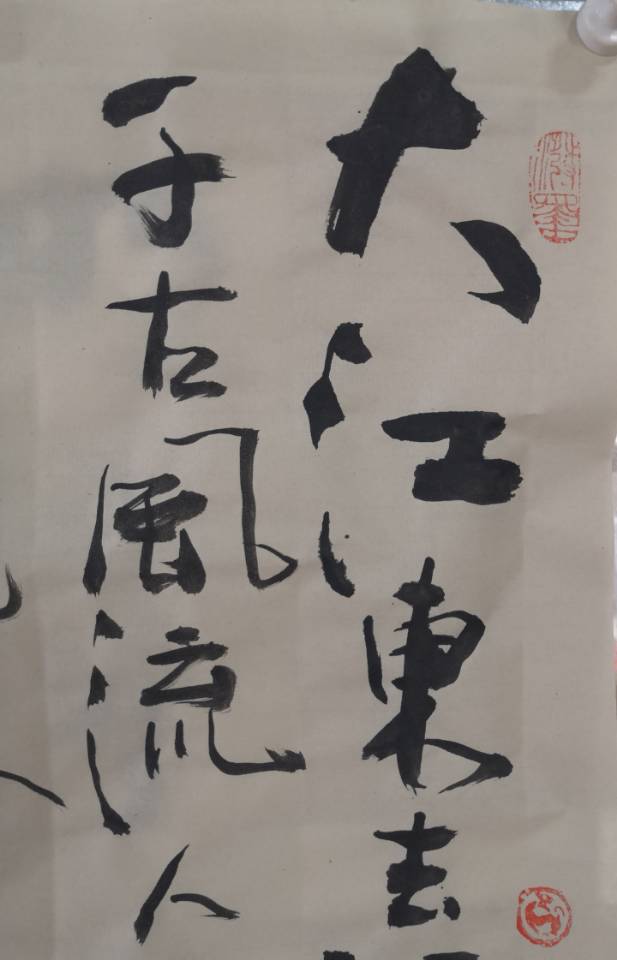 大江東去
千古風流人